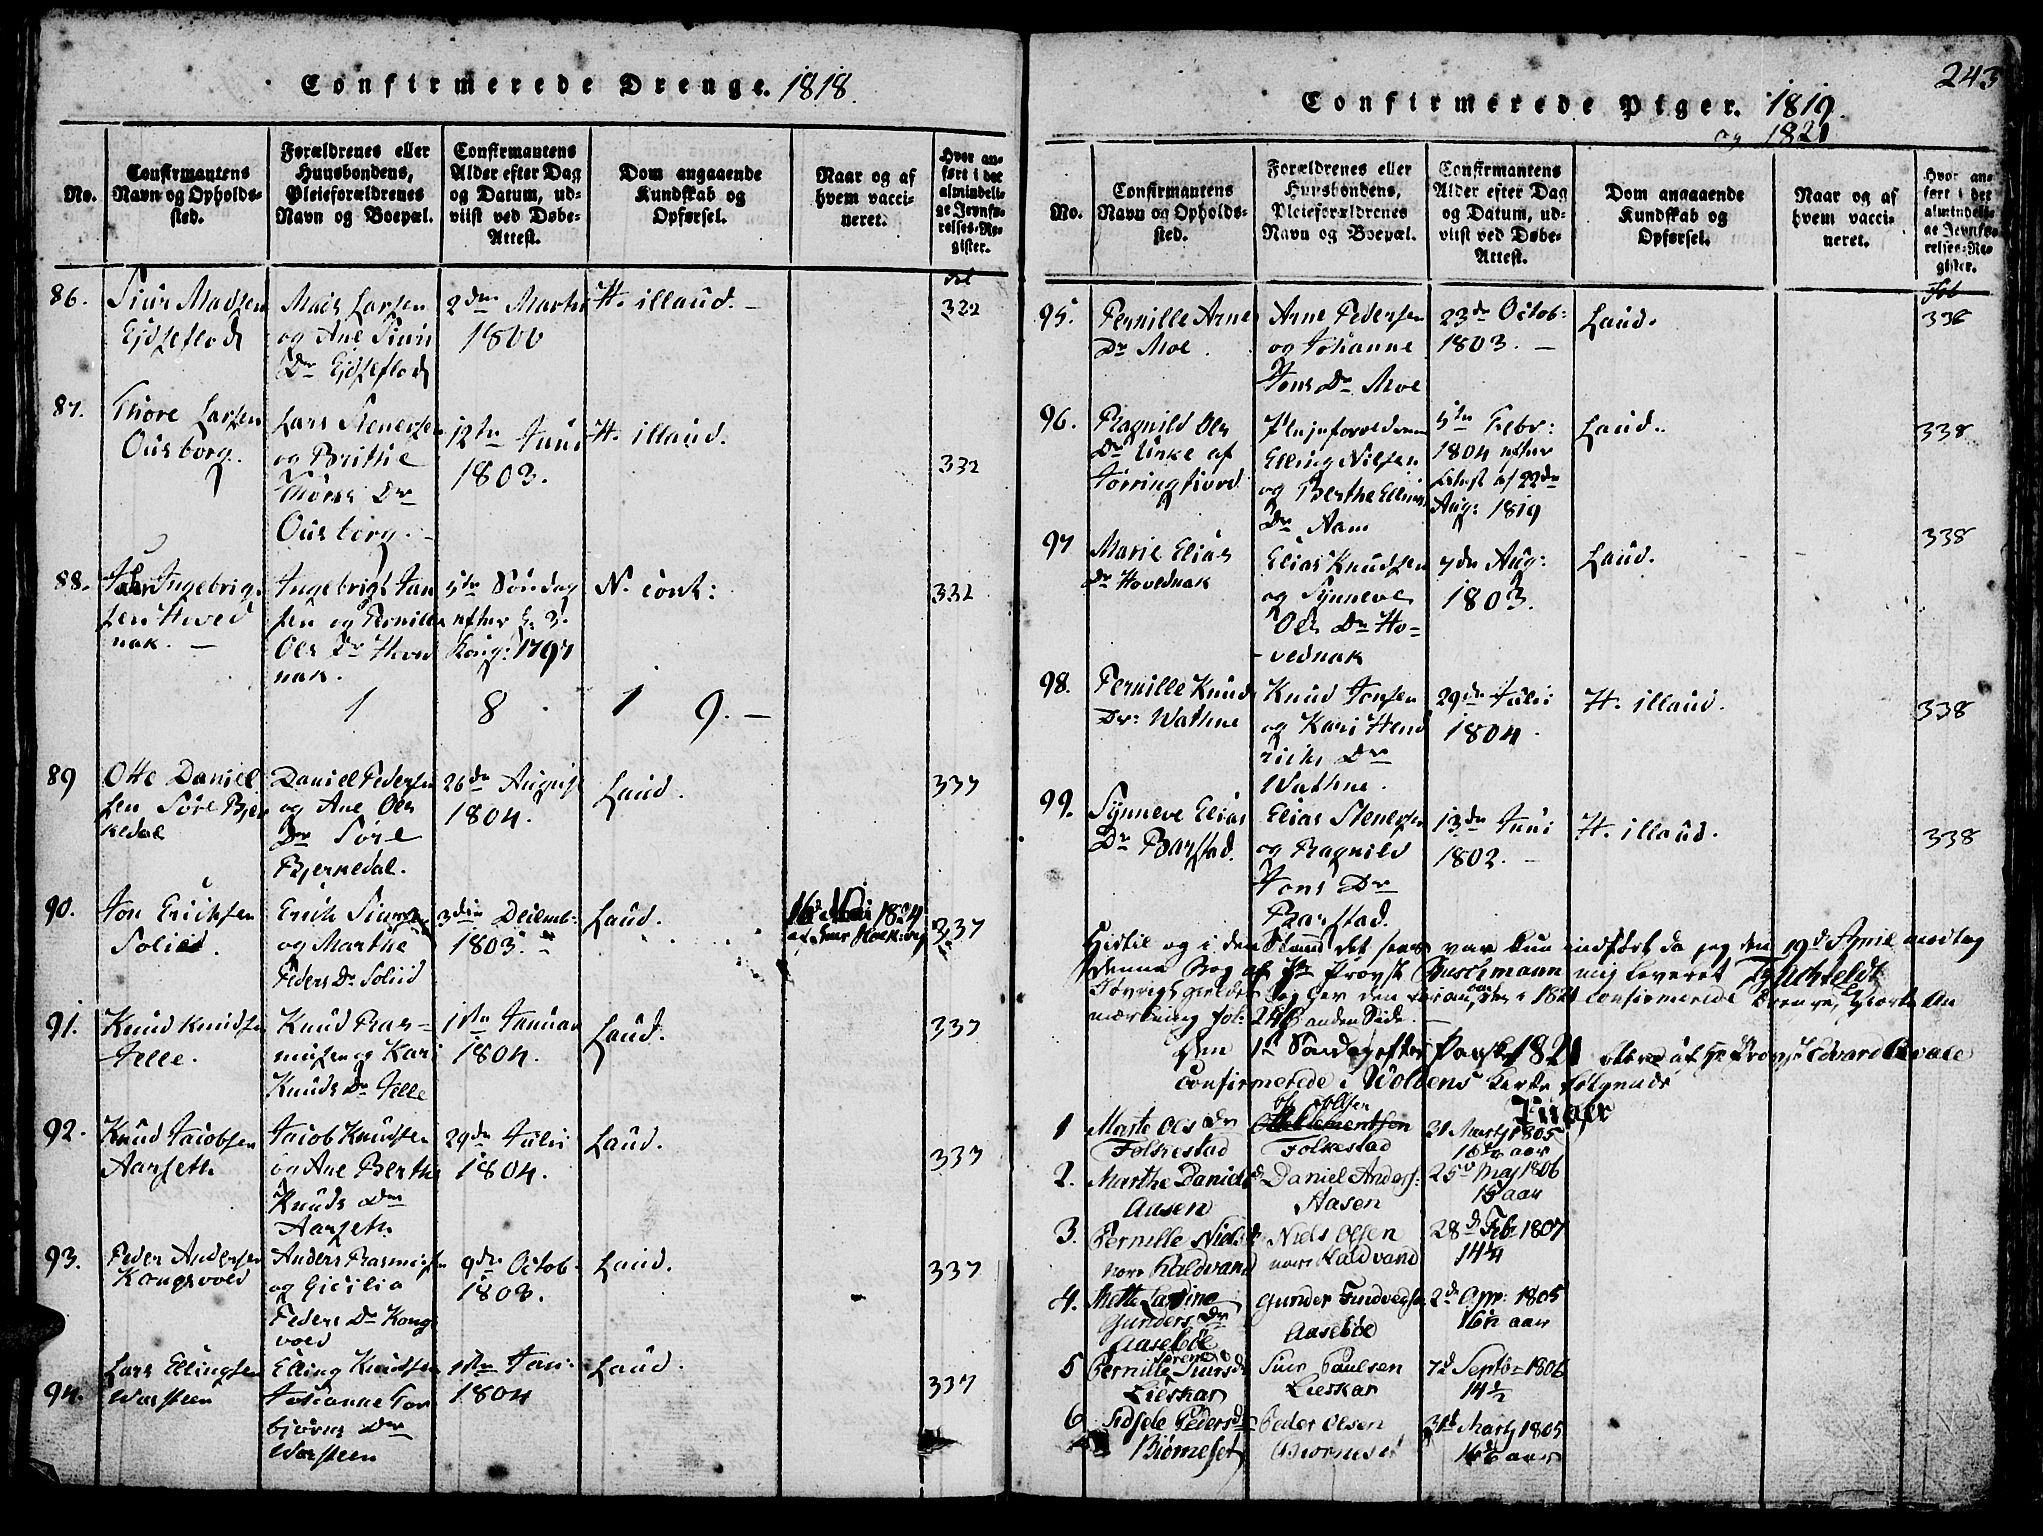 Confirmerede Drenge. 1818.
No.
Confirmantens
Navn og Opholds-
sted.
Forældrenes eller
Huusbondens,
Pleieforældrenes
Navn og Boepæl.
Confirmantens
Alder efter Dag
og Datum, ud-
viist ved Døbe-
Attest.
Dom angaaende
Kundskab og
Opførsel.
Naar og af
hvem vacci-
neret.
Hvor an-
ført i det
almindeli-
ge Jevnfø-
relses-Re-
gister.
86.
Siur Madsen
Mads Larsen
og Ane Siurs
Dr
2den Martii
1800
H. illaud. –
332
87.
Thore Larsen
Ousborg.
Lars Stenersen
og Brithe
Thores Dr
Ousborg.
12te Juni
1803.
H. illaud.
332
88.
Ingebrig-
sen Hoved
nak. –
Ingebrigt Jan
sen og Pernille
Ols Dr Hoved
nak.
5te Søndag
efter h. 3.
Kong: 1797
N. cont:
332
1 8 1 9. –
89
Otte Daniel
sen Søre Bjer
kedal
Daniel Pedersen
og Ane Ols
Dr Søre
Bjerkedal.
26de August
1804.
Laud.
337
90.
Jon Erichsen
Soliid.
Erich Siursen
og Marthe
Peders Dr Soliid
3die Decemb:
1803.
Laud.
337
91.
Knud Knudsen
Jelle.
Knud Ras-
musen og Kari
Knuds Dr Jelle
1804.
Laud.
337
92.
Knud Jacobsen
Aarseth
Jacob Knudsen
og Ane Berthe
Knuds Dr
Aarseth.
29de Julii
1804.
Laud.
337
93.
Peder Andersen
Kongsvold
Anders Rasmusen
og Gicilia
Peders Dr Kongs
vold
9de Octob.
1803.
Laud.
337
94.
Lars Ellingsen
Warsteen
Elling Knudsen
Johanne Tor
biørns Dr
Warsteen
1ste Jan:
1804
Laud.
337
243
Confirmerede Piger. 1819.
og 1821
No.
Confirmantens
Navn og Opholds-
sted.
Forældrenes eller
Huusbondens,
Pleieforældrenes
Navn og Boepæl.
Confirmantens
Alder efter Dag
og Datum, ud-
viist ved Døbe-
Attest.
Dom angaaende
Kundskab og
Opførsel.
Naar og af
hvem vacci-
neret.
Hvor an-
ført i det
almindeli-
ge Jevnfø-
relses-Re-
gister.
Fol
95.
Pernille Arne
Dr Moe.
Arne Pedersen
og Johanne
Jons Dr Moe
23de Octob:
1803. –
Laud.
338
96.
Ragnild Ols
Dr Linke af
Pleieforældrene
Elling Nilsen
og Berthe Ellings
Dr Aam
5te Febr:
1804 efter
Attest af 22de
Aug: 1819
Laud.
338
97
Marie Elias
Dr Hovednak
Elias Knudsen
og Synneve
Ols Dr Ho-
vednak
7de Aug:
1803.
Laud.
338
98.
Pernille Knuds
Dr: Wathne
Knud Jonsen
og Kari Hend
richs Dr
Wathne.
29de Julii
1804.
H. illaud.
338
99.
Synneve Elias
Dr Barstad.
Elias Stenersen
og Ragnild
Jons Dr
Barstad.
13de Juni
1802. –
H. illaud.
338
Hertil og i den Stand det sees var den indført da jeg den 19d April modtog
denne Bog af Hr Provst Buschmann mig leveret
confirmerede
anden Side.
Den 1te Søndag efter Paaske 1821
Confirmerede i Woldens Kirke følgende
Piger
1
Marte Ols Dr
Folkestad
Folkestad
31 Martj 1805
2.
Marthe Daniels
Aasen
Daniel Anders:
Aasen
25d Maj 1806
15 aar
3.
Pernille Niels
Niels Olsen
28d Feb 1807
14¼
4.
Gunders Dr
Aasebøe
Aasebøe
2d Apr: 1805
16 aar
5
Pernille Siursd
Lieskar
Siur Paulsen
Lieskar
7d Septbr 1806
14½
6
Sidsele Pedersd
Biørneset
Peder Olsen
Biørneset
31d Martj 1805